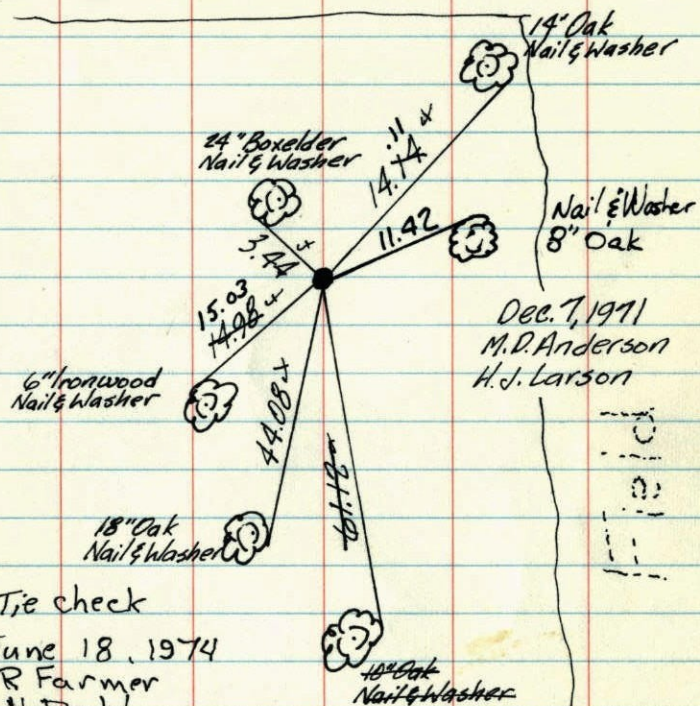 14" Oak
Nail & Washer
24" Boxelder
Nail & Washer
.11
14.14
Nail & Washer
8" Oak
11.42
3.44
15.03
14.98
Dec. 7, 1971
M.D. Anderson
H.J. Larson
6" Ironwood
Nail & Washer
44.08
Field
18" Oak
Nail & Washer
Tie check
June 18, 1974
R Farmer
10" Oak
Nail & Washer